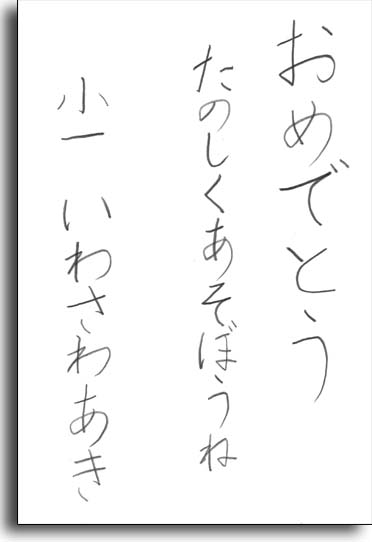 おめでとう
たのしくあそぼうね
小一 いわさわあき